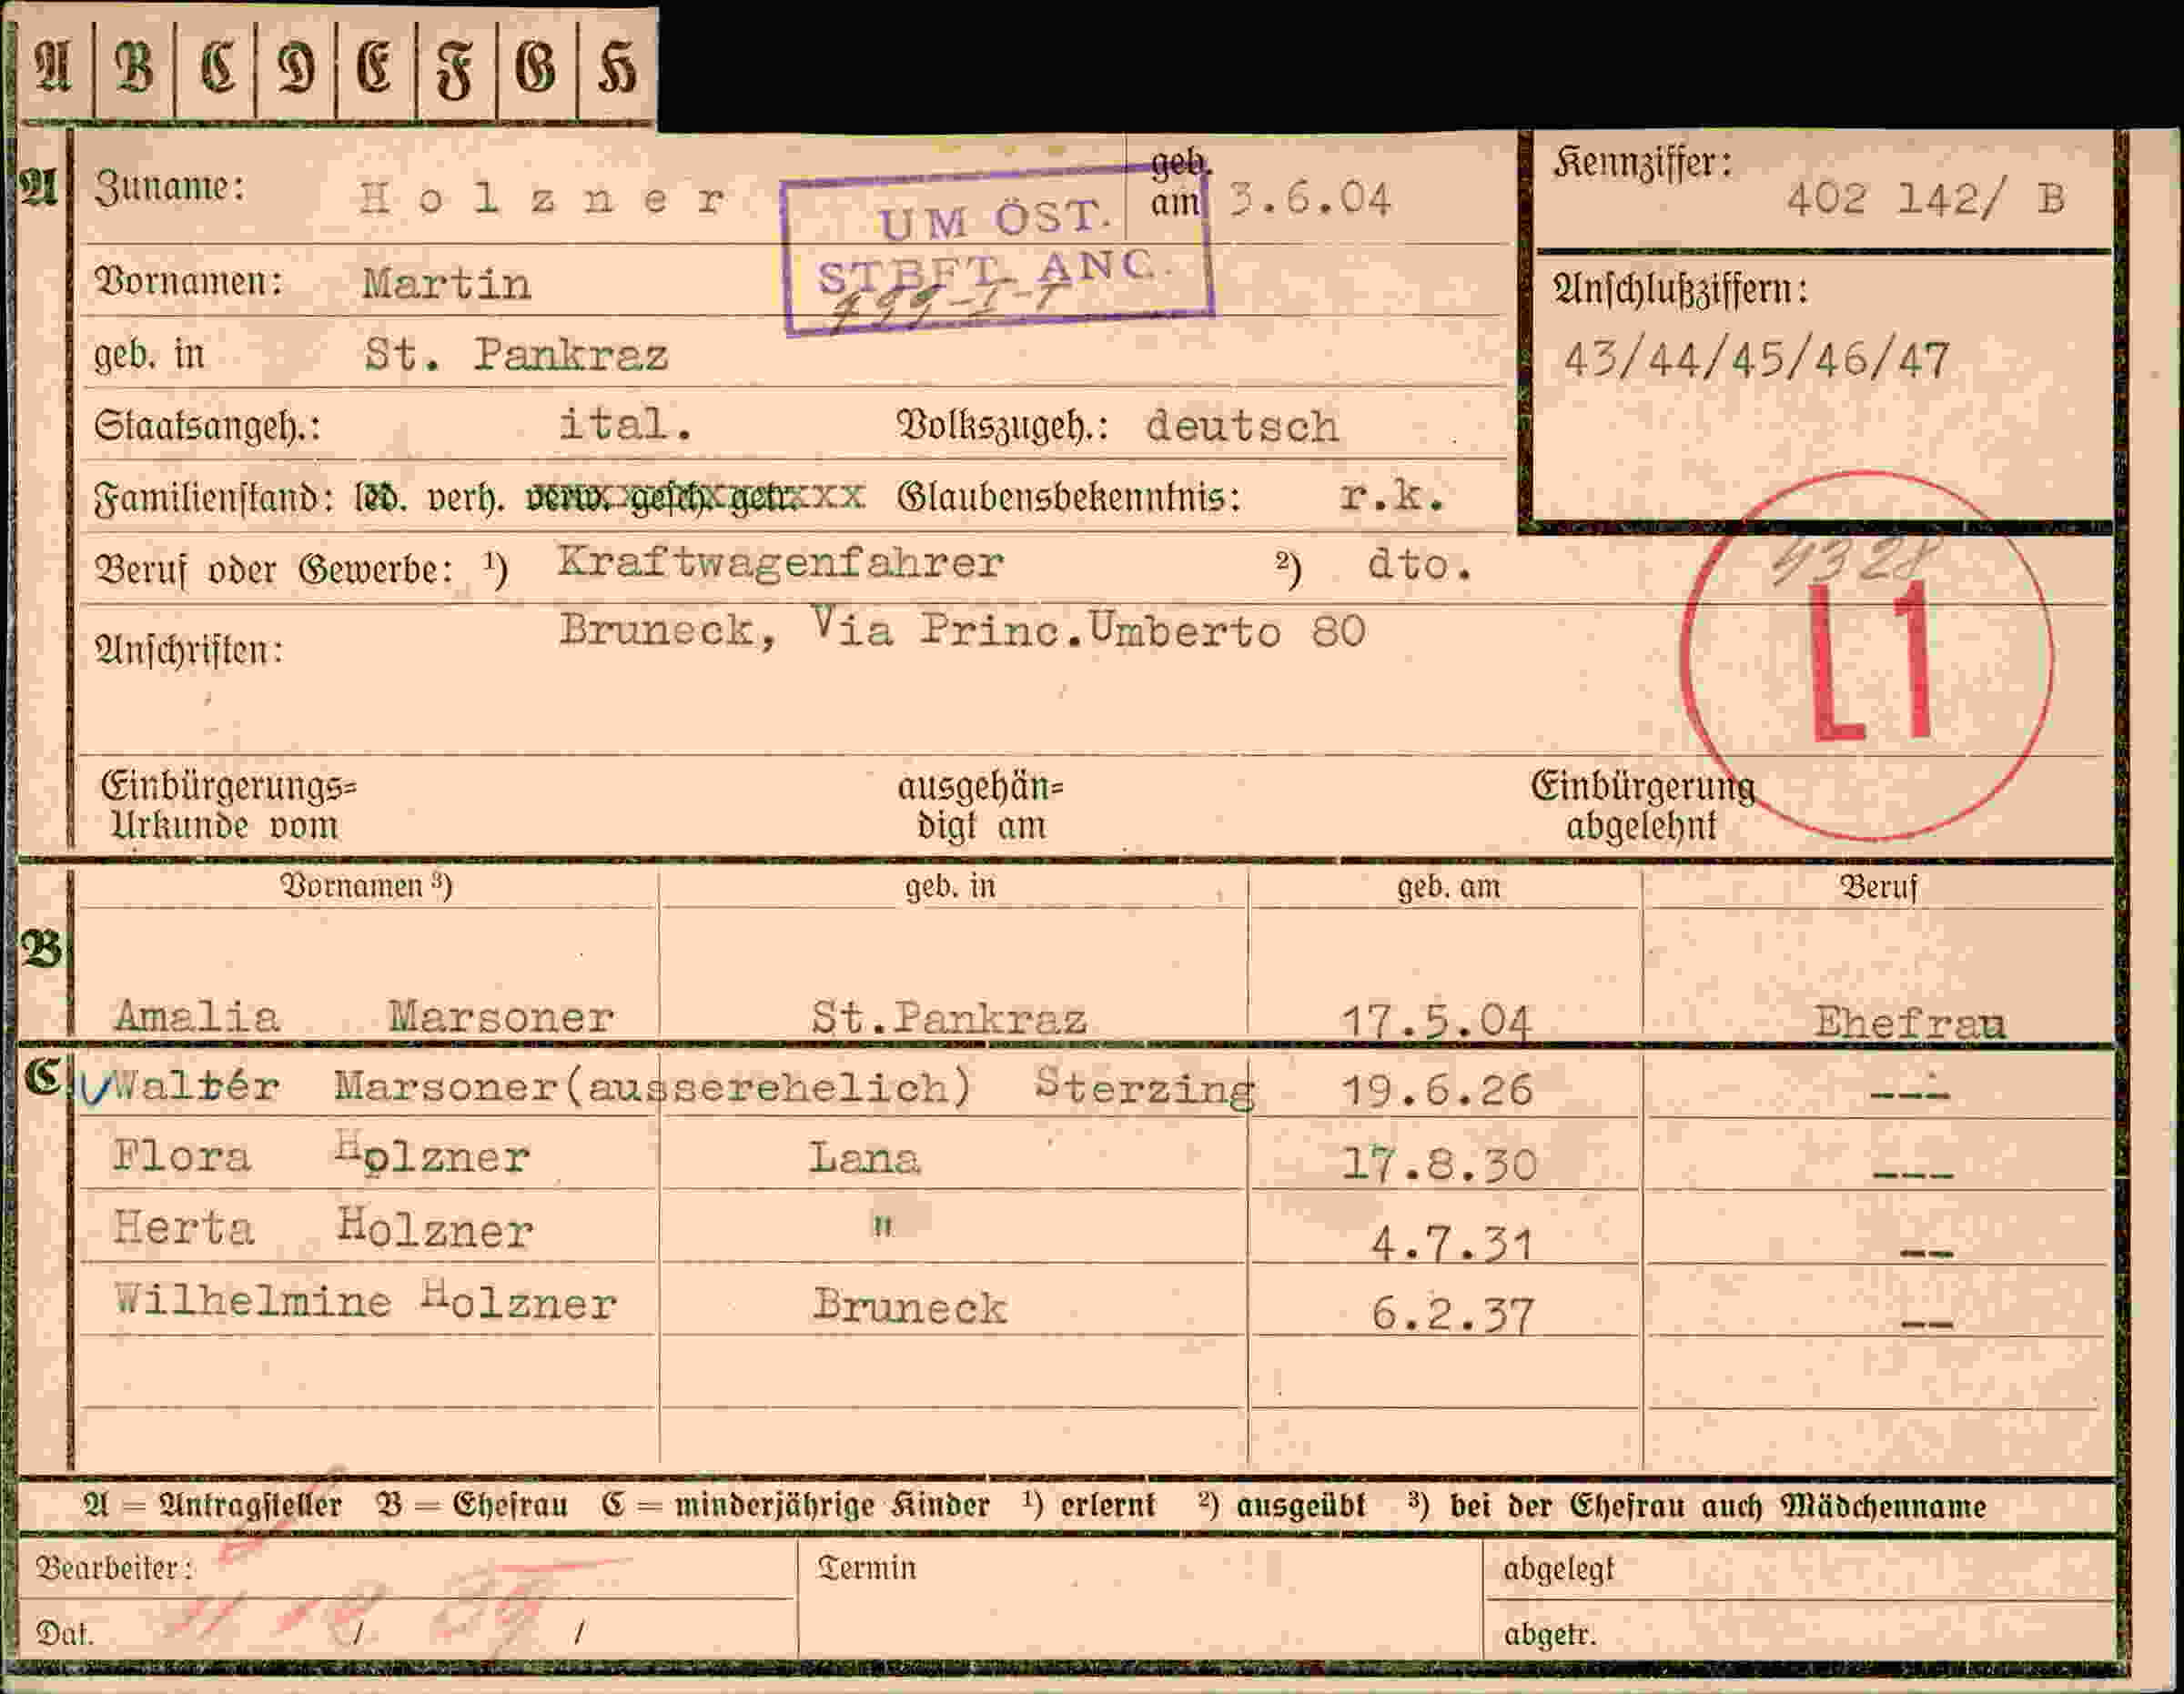 A B C D E F G H
A Zuname: Holzner geb. am 3.6.04 Kennziffer: 402 142/ B
UM ÖST.
STBFT. ANG.
Vornamen: Martin
Anschlußziffern:
43/44/45/46/47
geb. in St. Pankraz
Staatsangeh.: ital. Volkszugeh.: deutsch
Familienstand: led. verh. verw. gesch. getr. xxx Glaubensbekenntnis: r.k.
Beruf oder Gewerbe: 1) Kraftwagenfahrer 2) dto.
L1
Anschriften: Bruneck, Via Princ.Umberto 80
Einbürgerungs= ausgehän= Einbürgerung
Urkunde vom digt am abgelehnt
Vornamen 3) geb. in geb. am Beruf
B
Amalia Marsoner St.Pankraz 17.5.04 Ehefrau
C Walter Marsoner(ausserehelich) Sterzing 19.6.26 ---
Flora Holzner Lana 17.8.30 ---
Herta Holzner " 4.7.31 --
Wilhelmine Holzner Bruneck 6.2.37 --
A = Antragsteller B = Ehefrau C = minderjährige Kinder 1) erlernt 2) ausgeübt 3) bei der Ehefrau auch Mädchenname
Bearbeiter: Termin abgelegt
Dat. / / abgetr.